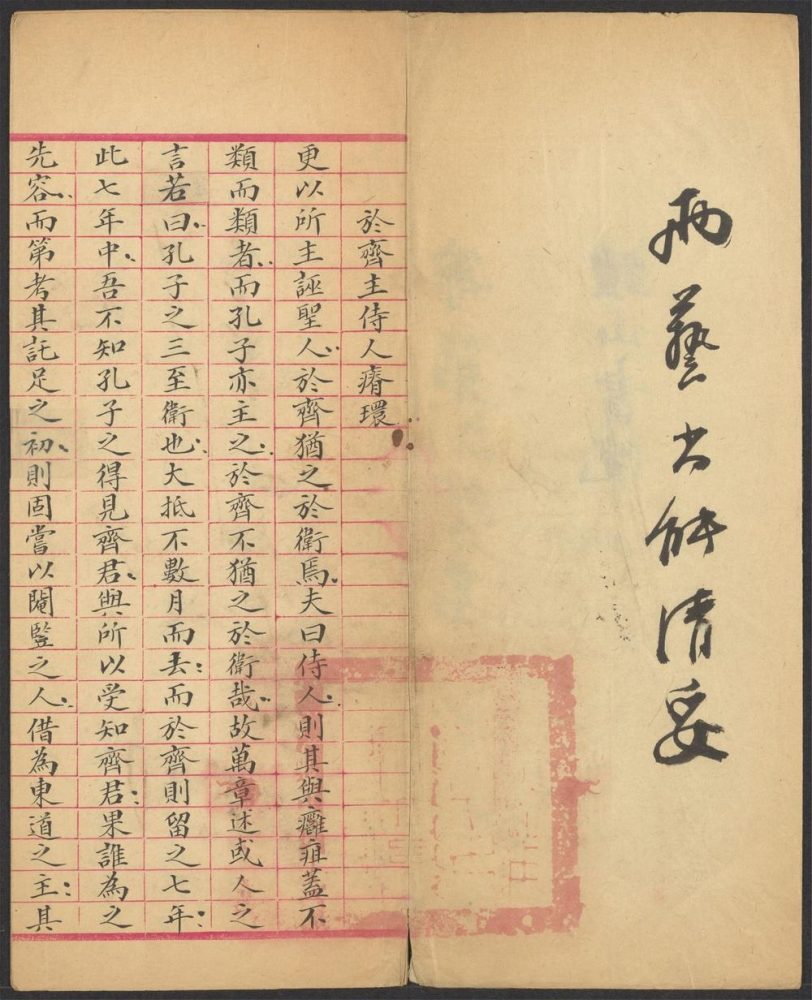 兩藝尚能清妥
於齊主侍人瘠環
更以所主誣聖人於齊猶之於衛焉夫曰侍人則其與癰疽蓋不
類而類者而孔子亦主之於齊不猶之於衛哉故萬章述或人之
言若曰孔子之三至衛也大抵不數月而去而於齊則留之七年
此七年中吾不知孔子之得見齊君與所以受知齊君果誰為之
先容而第考其託足之初則固嘗以閹豎之人借為東道之主其